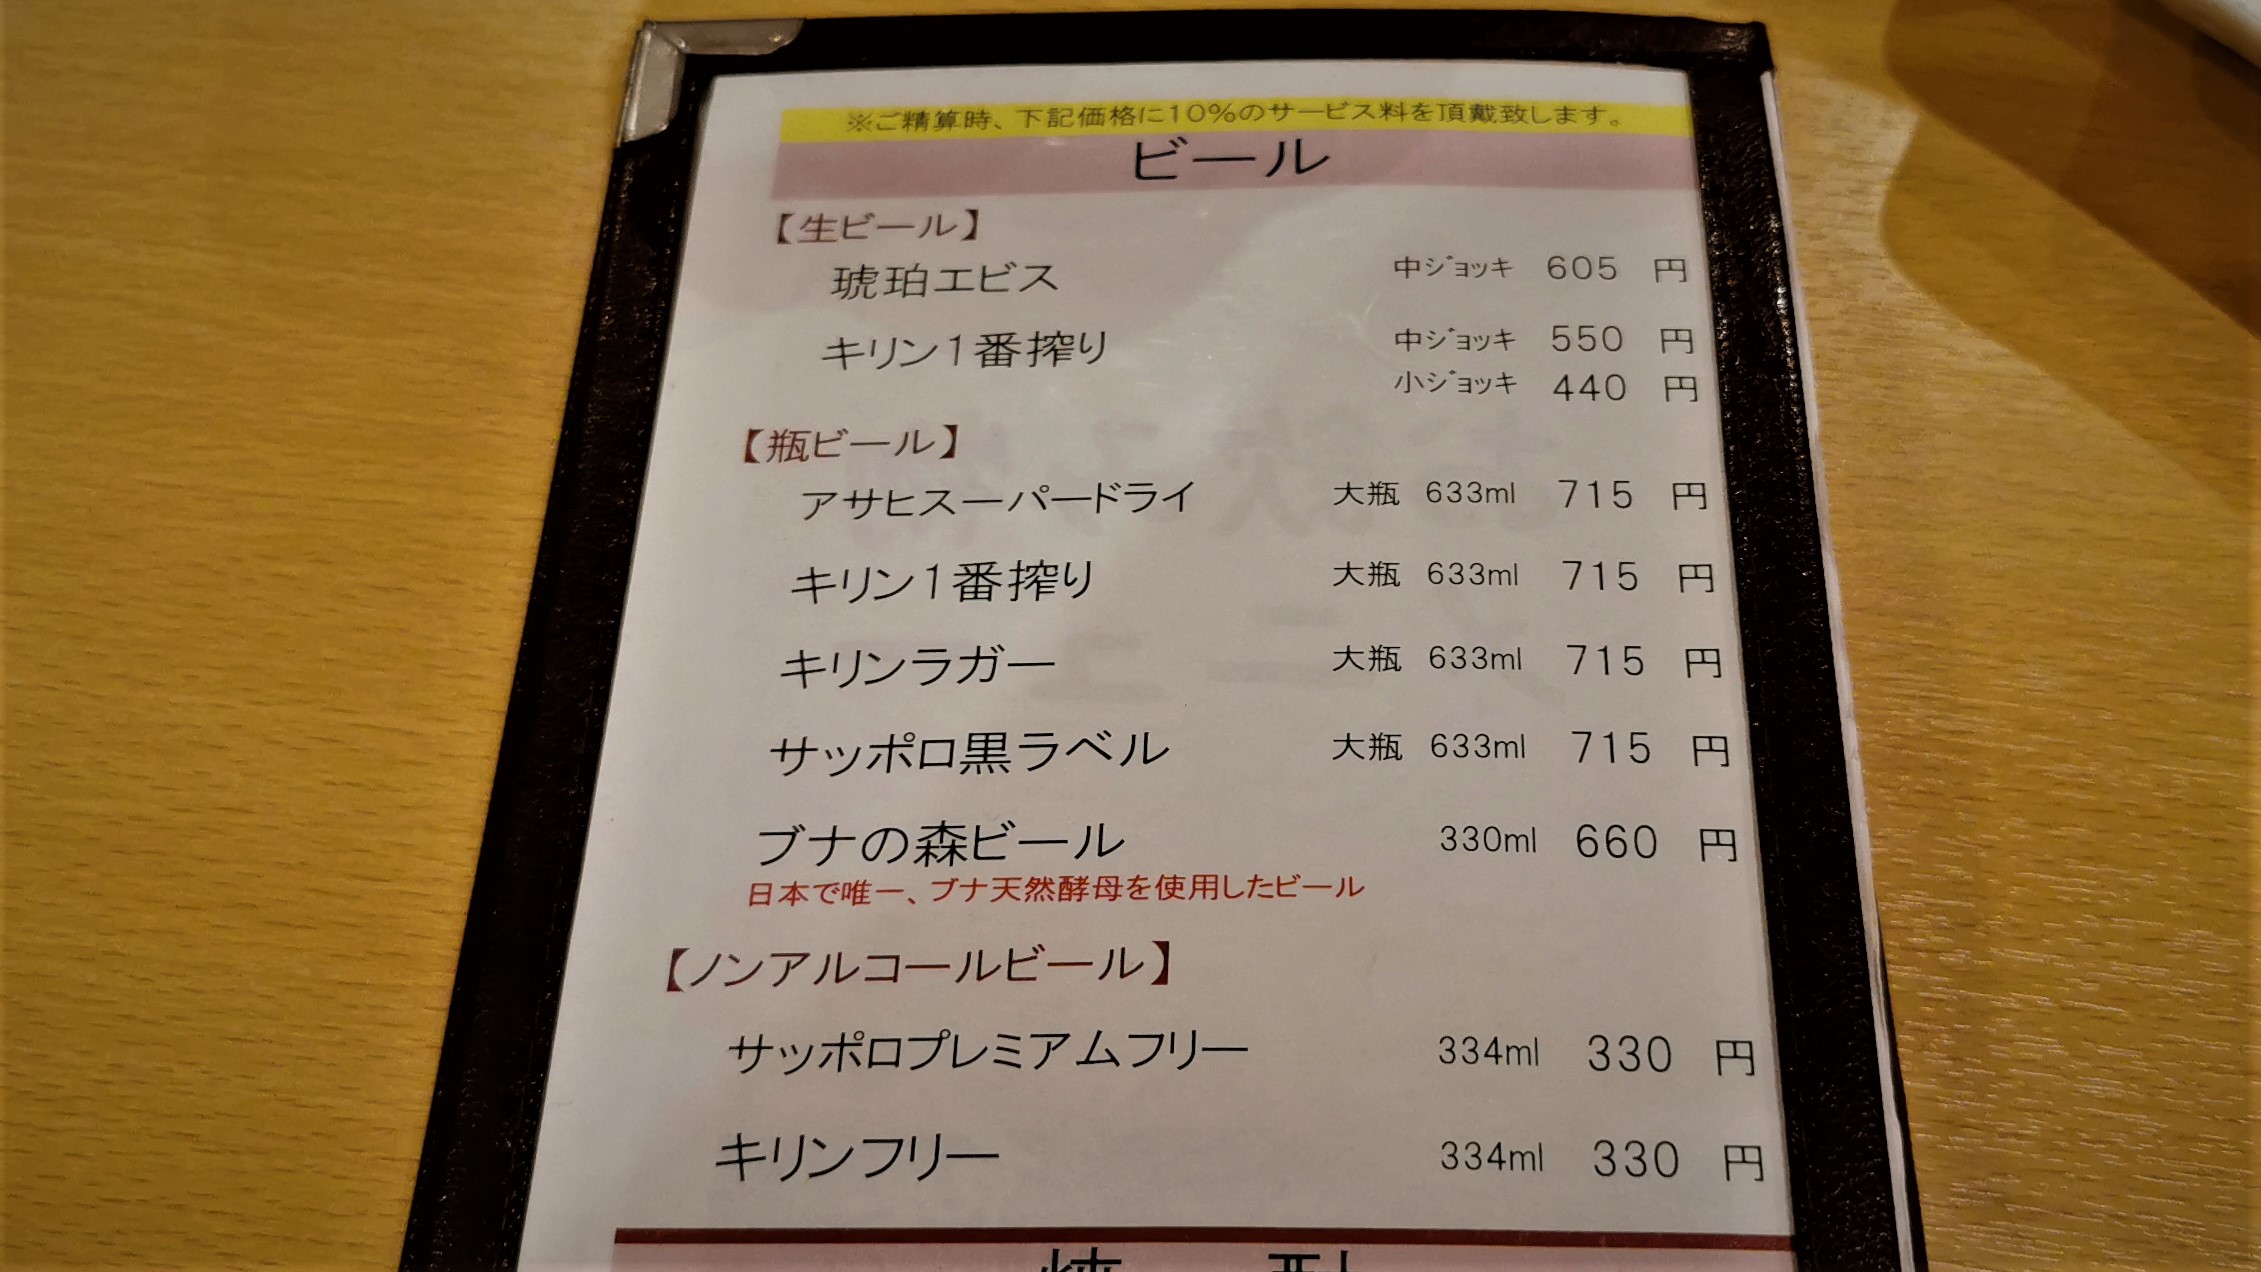 ※ご精算時、下記価格に10%のサービス料を頂戴致します。
ビール
【生ビール】
琥珀エビス 中ジョッキ 605 円
キリン1番搾り 中ジョッキ 550 円
小ジョッキ 440 円
【瓶ビール】
アサヒスーパードライ 大瓶 633ml 715 円
キリン1番搾り 大瓶 633ml 715 円
キリンラガー 大瓶 633ml 715 円
サッポロ黒ラベル 大瓶 633ml 715 円
ブナの森ビール 330ml 660 円
日本で唯一、ブナ天然酵母を使用したビール
【ノンアルコールビール】
サッポロプレミアムフリー 334ml 330 円
キリンフリー 334ml 330 円